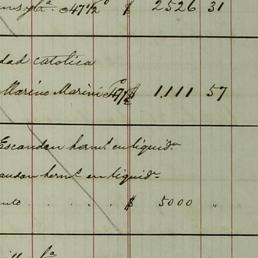 47½ $ 2526 31
dad catolica
Marino Marini Cº 47½ $ 1,111 57
Escandon hermˢ en liquidⁿ
andon hermˢ en liquidⁿ
$ 5000 "